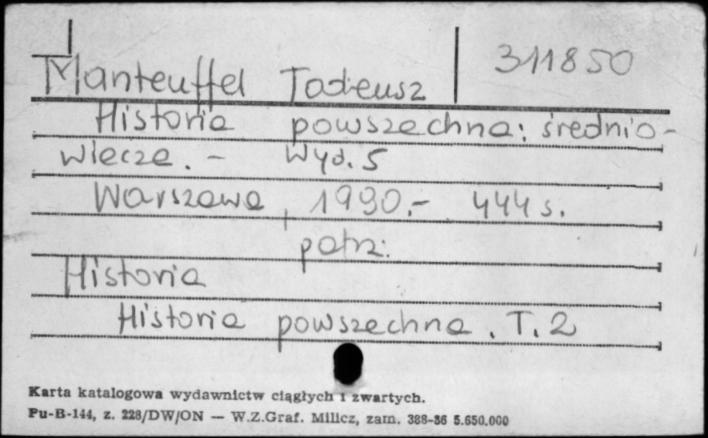 Manteuffel Tadeusz 311850
Historia powszechna: średnio-
wiecze. - Wyd. 5
Warszawa, 1990.- 444 s.
patrz:
Historia
Historia powszechna. T. 2
Karta katalogowa wydawnictw ciągłych i zwartych.
Pu-B-144, z. 228/DW/ON — W.Z.Graf. Milicz, zam. 388-86 5.650.000